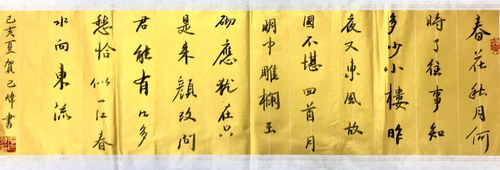 春花秋月何
時了往事知
多少小樓昨
夜又東風故
國不堪回首月
明中雕欄玉
砌應猶在只
是朱顏改問
君能有幾多
愁恰似一江春
水向東流
己亥夏賀己煒書